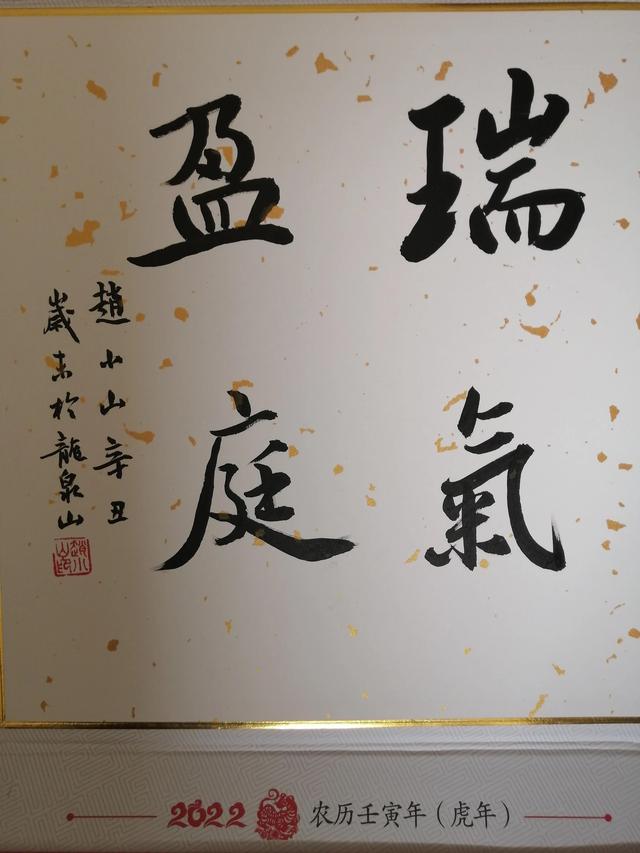 瑞氣
盈庭
趙小山辛丑
歲末於龍泉山
趙小山印
2022 农历壬寅年（虎年）